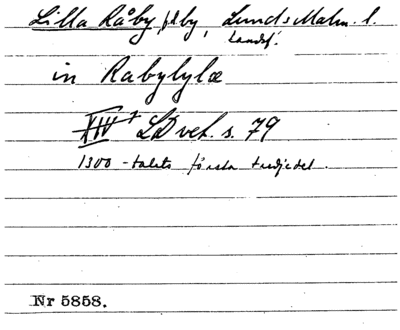 Lilla Råby, by, Lunds Malm. l.
Landsf.
in Rabylylæ
XIV 1 LDvet. s. 79
1300-talets första tredjedel.
Nr 5858.